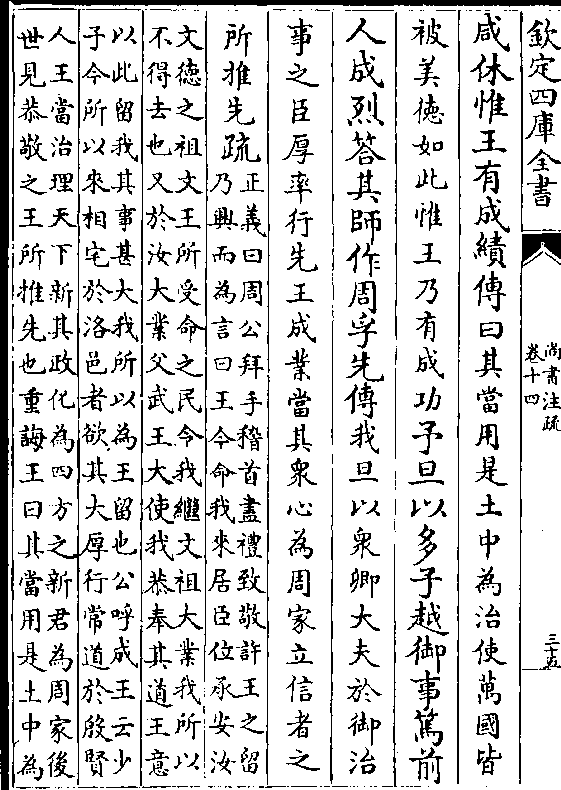 欽定四庫全書
尚書注疏
卷十四
三十五
咸休惟王有成績傳曰其當用是土中為治使萬國皆
被美德如此惟王乃有成功予旦以多子越御事篤前
人成烈荅其師作周孚先傳我旦以衆卿大夫於御治
事之臣厚率行先王成業當其衆心為周家立信者之
所推先疏
正義曰周公拜手稽首盡禮致敬許王之留
乃興而為言曰王今命我來居臣位承安汝
文德之祖文王所受命之民令我繼文祖大業我所以
不得去也又於汝大業父武王大使我恭奉其道王意
以此留我其事甚大我所以為王留也公呼成王云少
子今所以來相宅於洛邑者欲其大厚行常道於殷賢
人王當治理天下新其政化為四方之新君為周家後
世見恭敬之王所推先也重誨王曰其當用是土中為